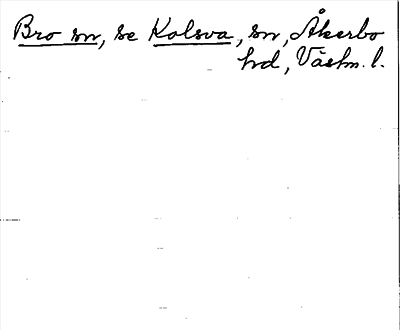 Bro sn, se Kolsva, sn, Åkerbo
hd, Västm. l.